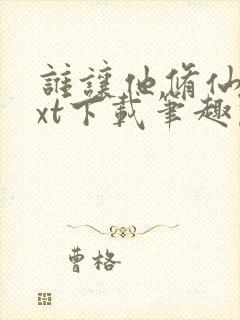 誰讓他脩仙
xt下載筆趣
曹格